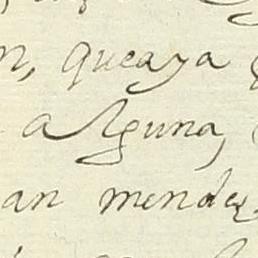 n, queaya
alguna,
an mendez